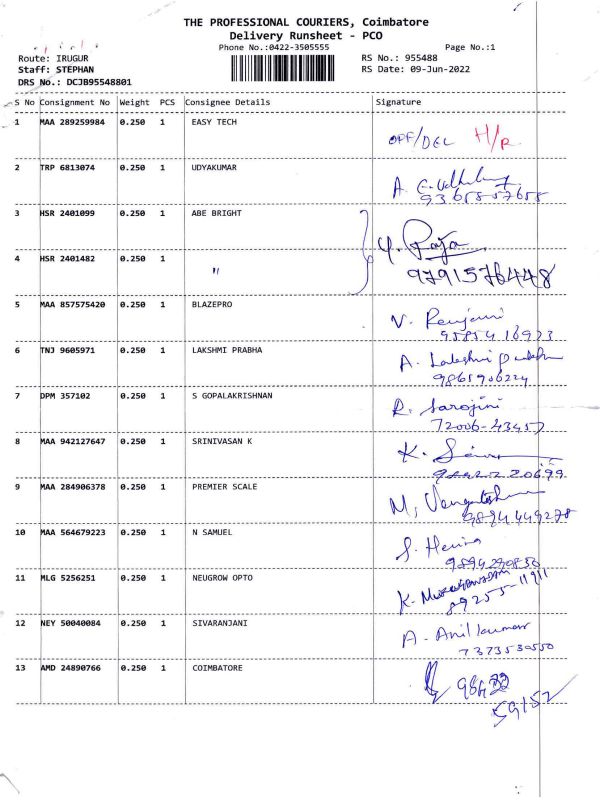 THE PROFESSIONAL COURIERS, Coimbatore
Delivery Runsheet - PCO
Phone No.:0422-3505555 Page No.:1
Route: IRUGUR RS No.: 955488
Staff: STEPHAN RS Date: 09-Jun-2022
DRS No.: DCJB95548801
S No Consignment No Weight PCS Consignee Details Signature
1 MAA 289259984 0.250 1 EASY TECH
OFF/DEL H/R
2 TRP 6813074 0.250 1 UDYAKUMAR
A.
9365857658
3 HSR 2401099 0.250 1 ABE BRIGHT
Y. Raja
4 HSR 2401482 0.250 1 "
9791576448
5 MAA 857575420 0.250 1 BLAZEPRO
V. Renjani
9585416923
6 TNJ 9605971 0.250 1 LAKSHMI PRABHA
A. Lakshmi
9865906224
7 DPM 357102 0.250 1 S GOPALAKRISHNAN
R. Sarojini
72006-43457
8 MAA 942127647 0.250 1 SRINIVASAN K
K.
9 MAA 284906378 0.250 1 PREMIER SCALE
M.
9894449278
10 MAA 564679223 0.250 1 N SAMUEL
S.
11 MLG 5256251 0.250 1 NEUGROW OPTO
K.
89255-11911
12 NEY 50040084 0.250 1 SIVARANJANI
A. Anilkumar
7373530550
13 AMD 24890766 0.250 1 COIMBATORE
59152